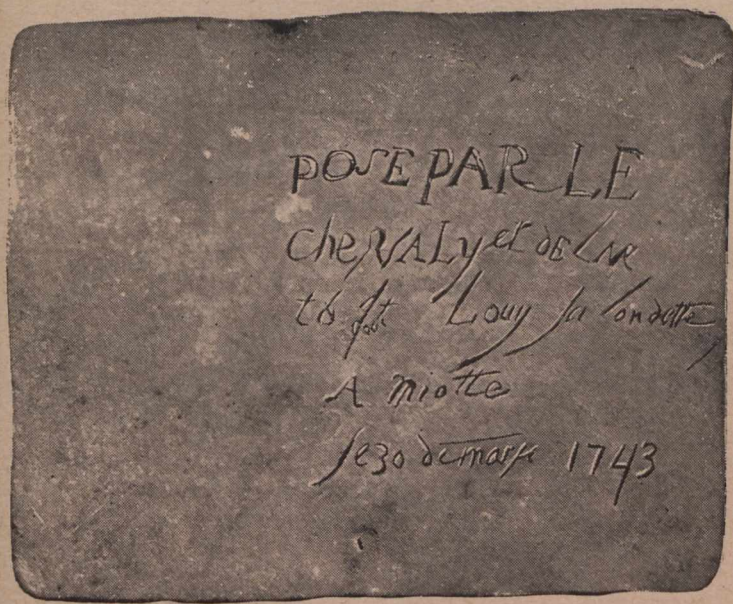 POSE PAR LE
CheVALyet DE LAR
to st Louy la londette
A Miotte
le 30 de mars 1743